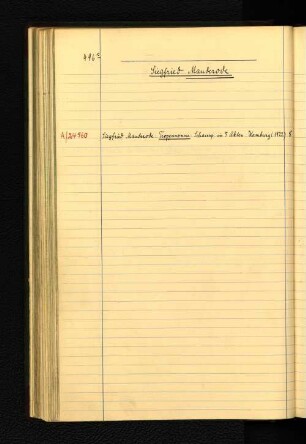 496ᵃ
Siegfried Mauterode
A/24960 Siegfried Mauterode: Schausp. in 3 Akten. Hamburg (1922) 8